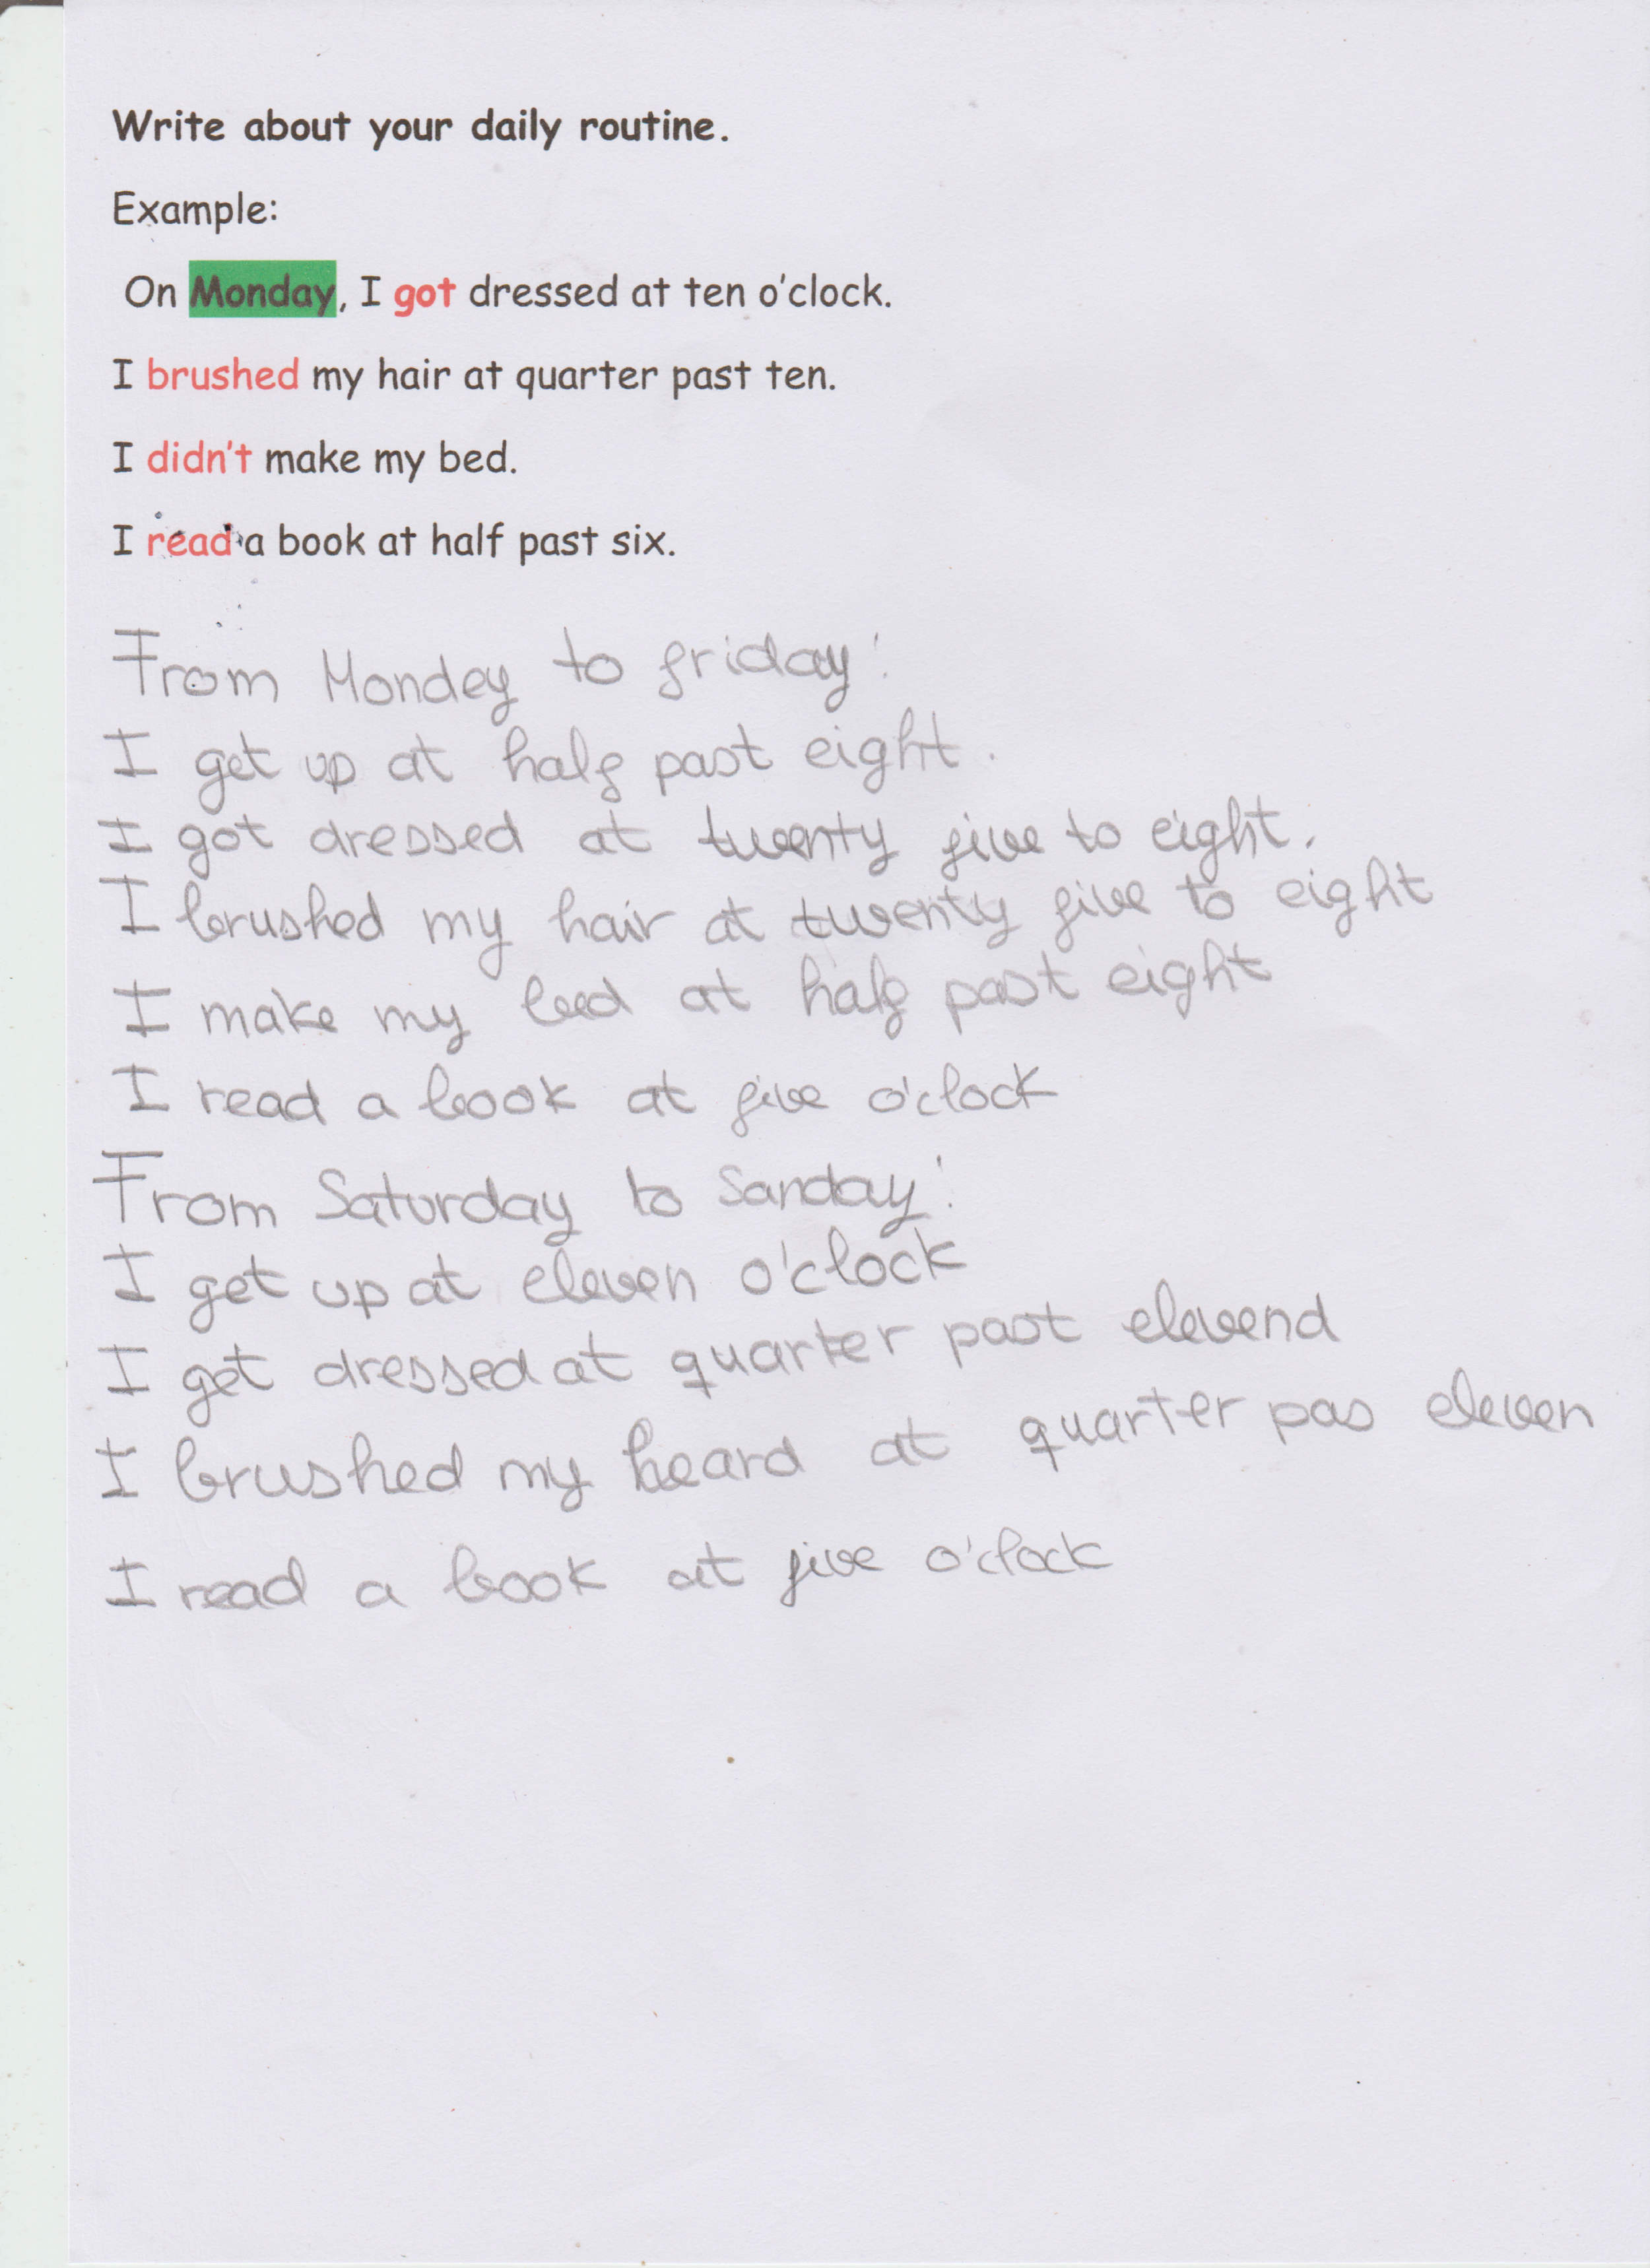 Write about your daily routine.
Example:
On Monday, I got dressed at ten o'clock.
I brushed my hair at quarter past ten.
I didn't make my bed.
I read a book at half past six.
From Mondey to friday:
I get up at half past eight.
I got dressed at twenty five to eight.
I brushed my hair at twenty five to eight
I make my bed at half past eight
I read a book at five o'clock
From Saturday to Sanday:
I get up at eleven o'clock
I get dressed at quarter past elevend
I brushed my heard at quarter pas eleven
I read a book at five o'clock